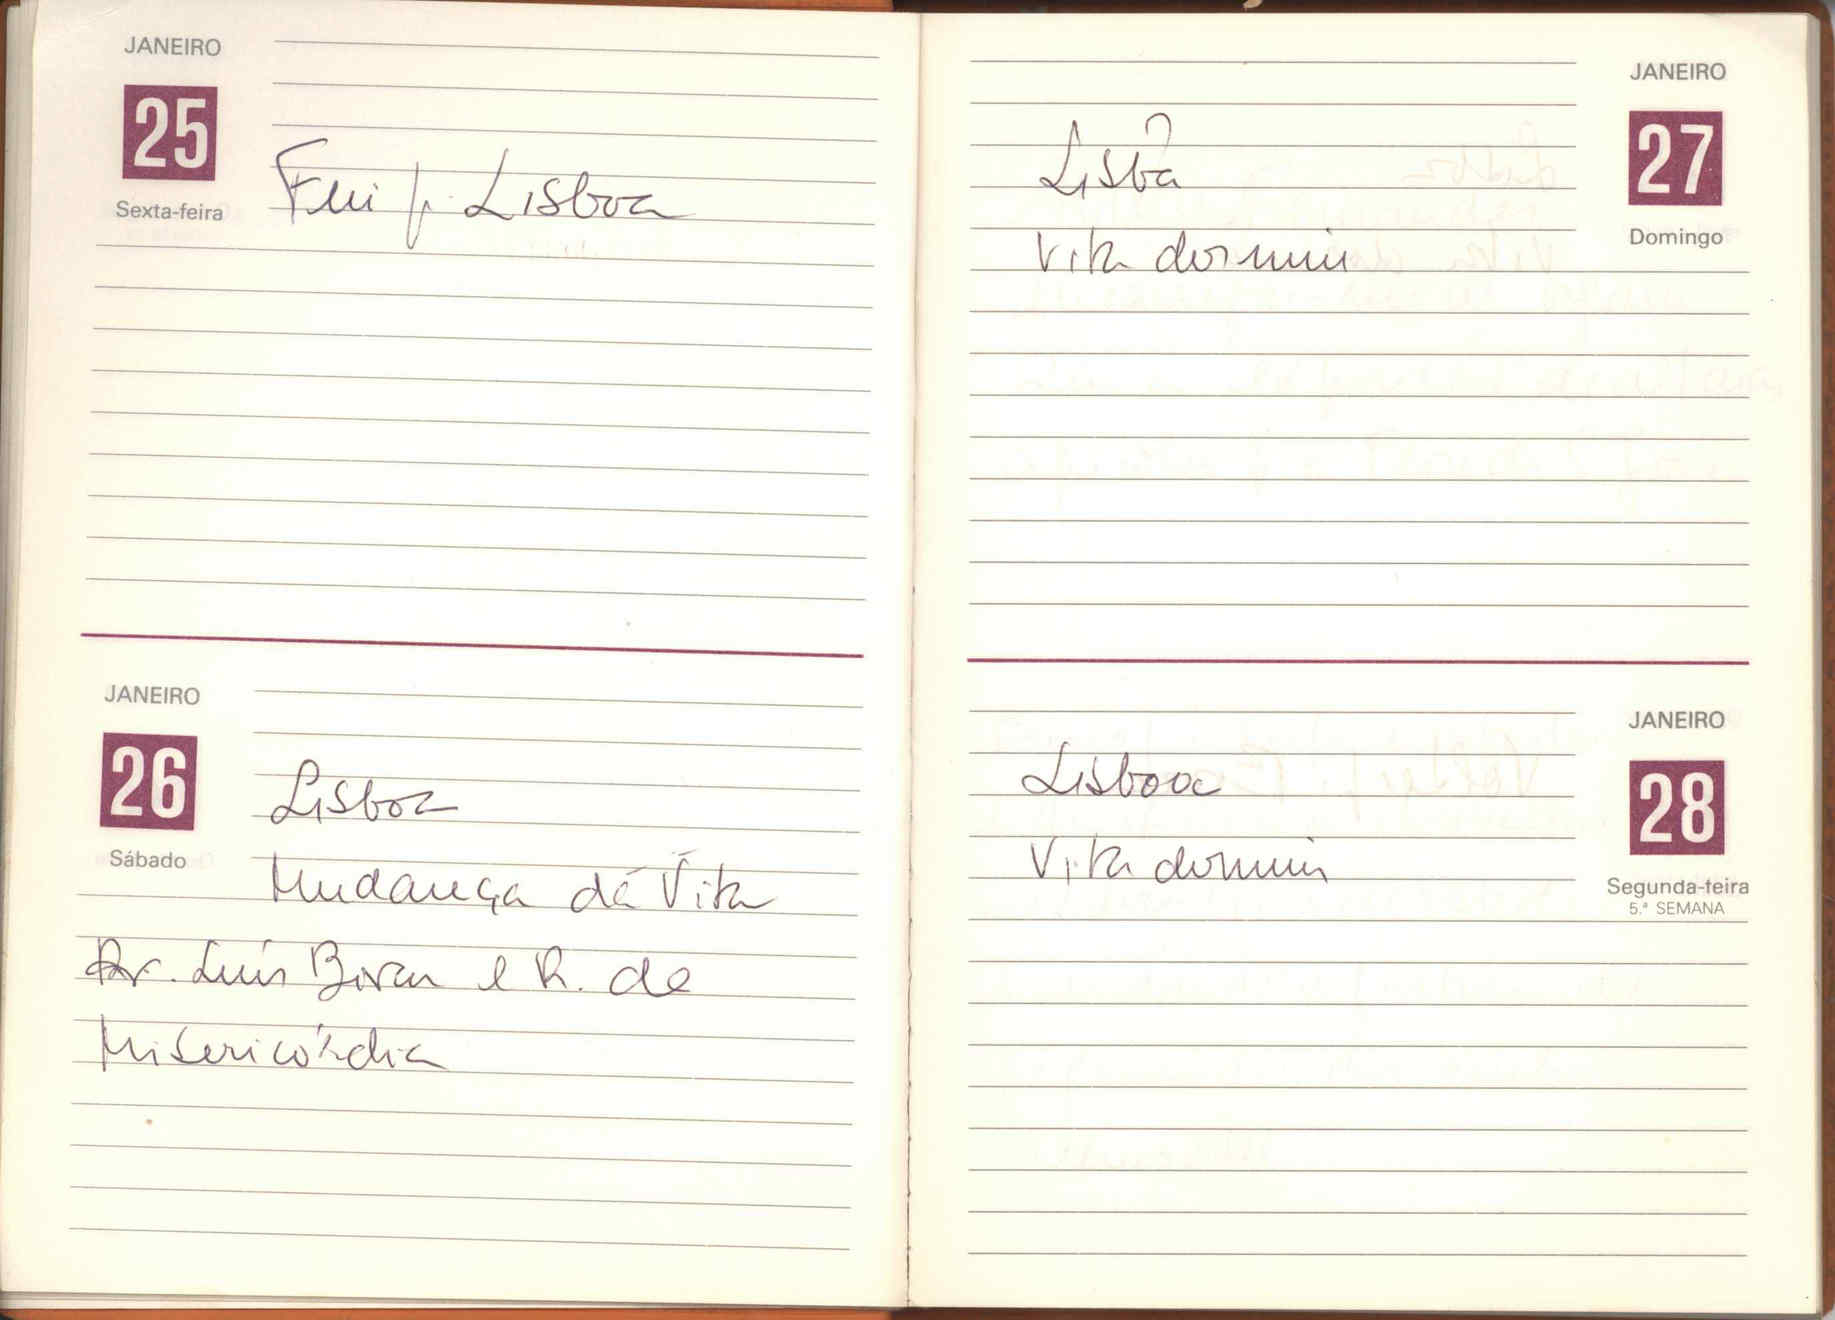 JANEIRO
25
Sexta-feira
Fui p. Lisboa
JANEIRO
26
Sábado
Lisboa
Mudança da Vita
Dr. Luís e R. de
Misericórdia
JANEIRO
27
Domingo
Lisboa
Vita dormiu
JANEIRO
28
Segunda-feira
5.ª SEMANA
Lisboa
Vita dormiu